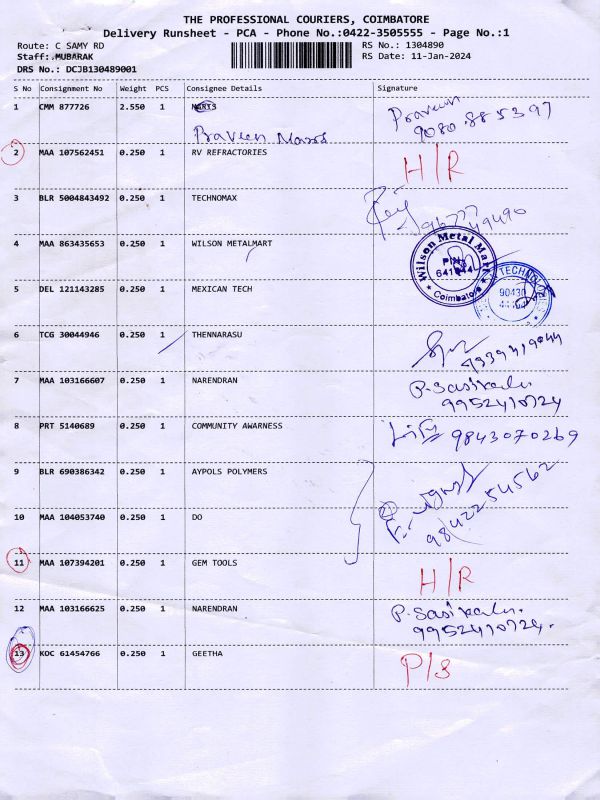 THE PROFESSIONAL COURIERS, COIMBATORE
Delivery Runsheet - PCA - Phone No.:0422-3505555 - Page No.:1
Route: C SAMY RD
RS No.: 1304890
Staff: MUBARAK
RS Date: 11-Jan-2024
DRS No.: DCJB130489001
S No Consignment No Weight PCS Consignee Details Signature
1 CMM 877726 2.550 1 MARTS Praveen
Praveen Marrs 9080 885397
2 MAA 107562451 0.250 1 RV REFRACTORIES H/R
3 BLR 5004843492 0.250 1 TECHNOMAX
4 MAA 863435653 0.250 1 WILSON METALMART
Wilson Metal Mart
Coimbatore
5 DEL 121143285 0.250 1 MEXICAN TECH
90430
6 TCG 30044946 0.250 1 THENNARASU
7 MAA 103166607 0.250 1 NARENDRAN P. Sasikala
9952410724
8 PRT 5140689 0.250 1 COMMUNITY AWARNESS 9843070269
9 BLR 690386342 0.250 1 AYPOLS POLYMERS
10 MAA 104053740 0.250 1 DO 9842254562
11 MAA 107394201 0.250 1 GEM TOOLS H/R
12 MAA 103166625 0.250 1 NARENDRAN P. Sasikala.
9952410724.
13 KOC 61454766 0.250 1 GEETHA P/S